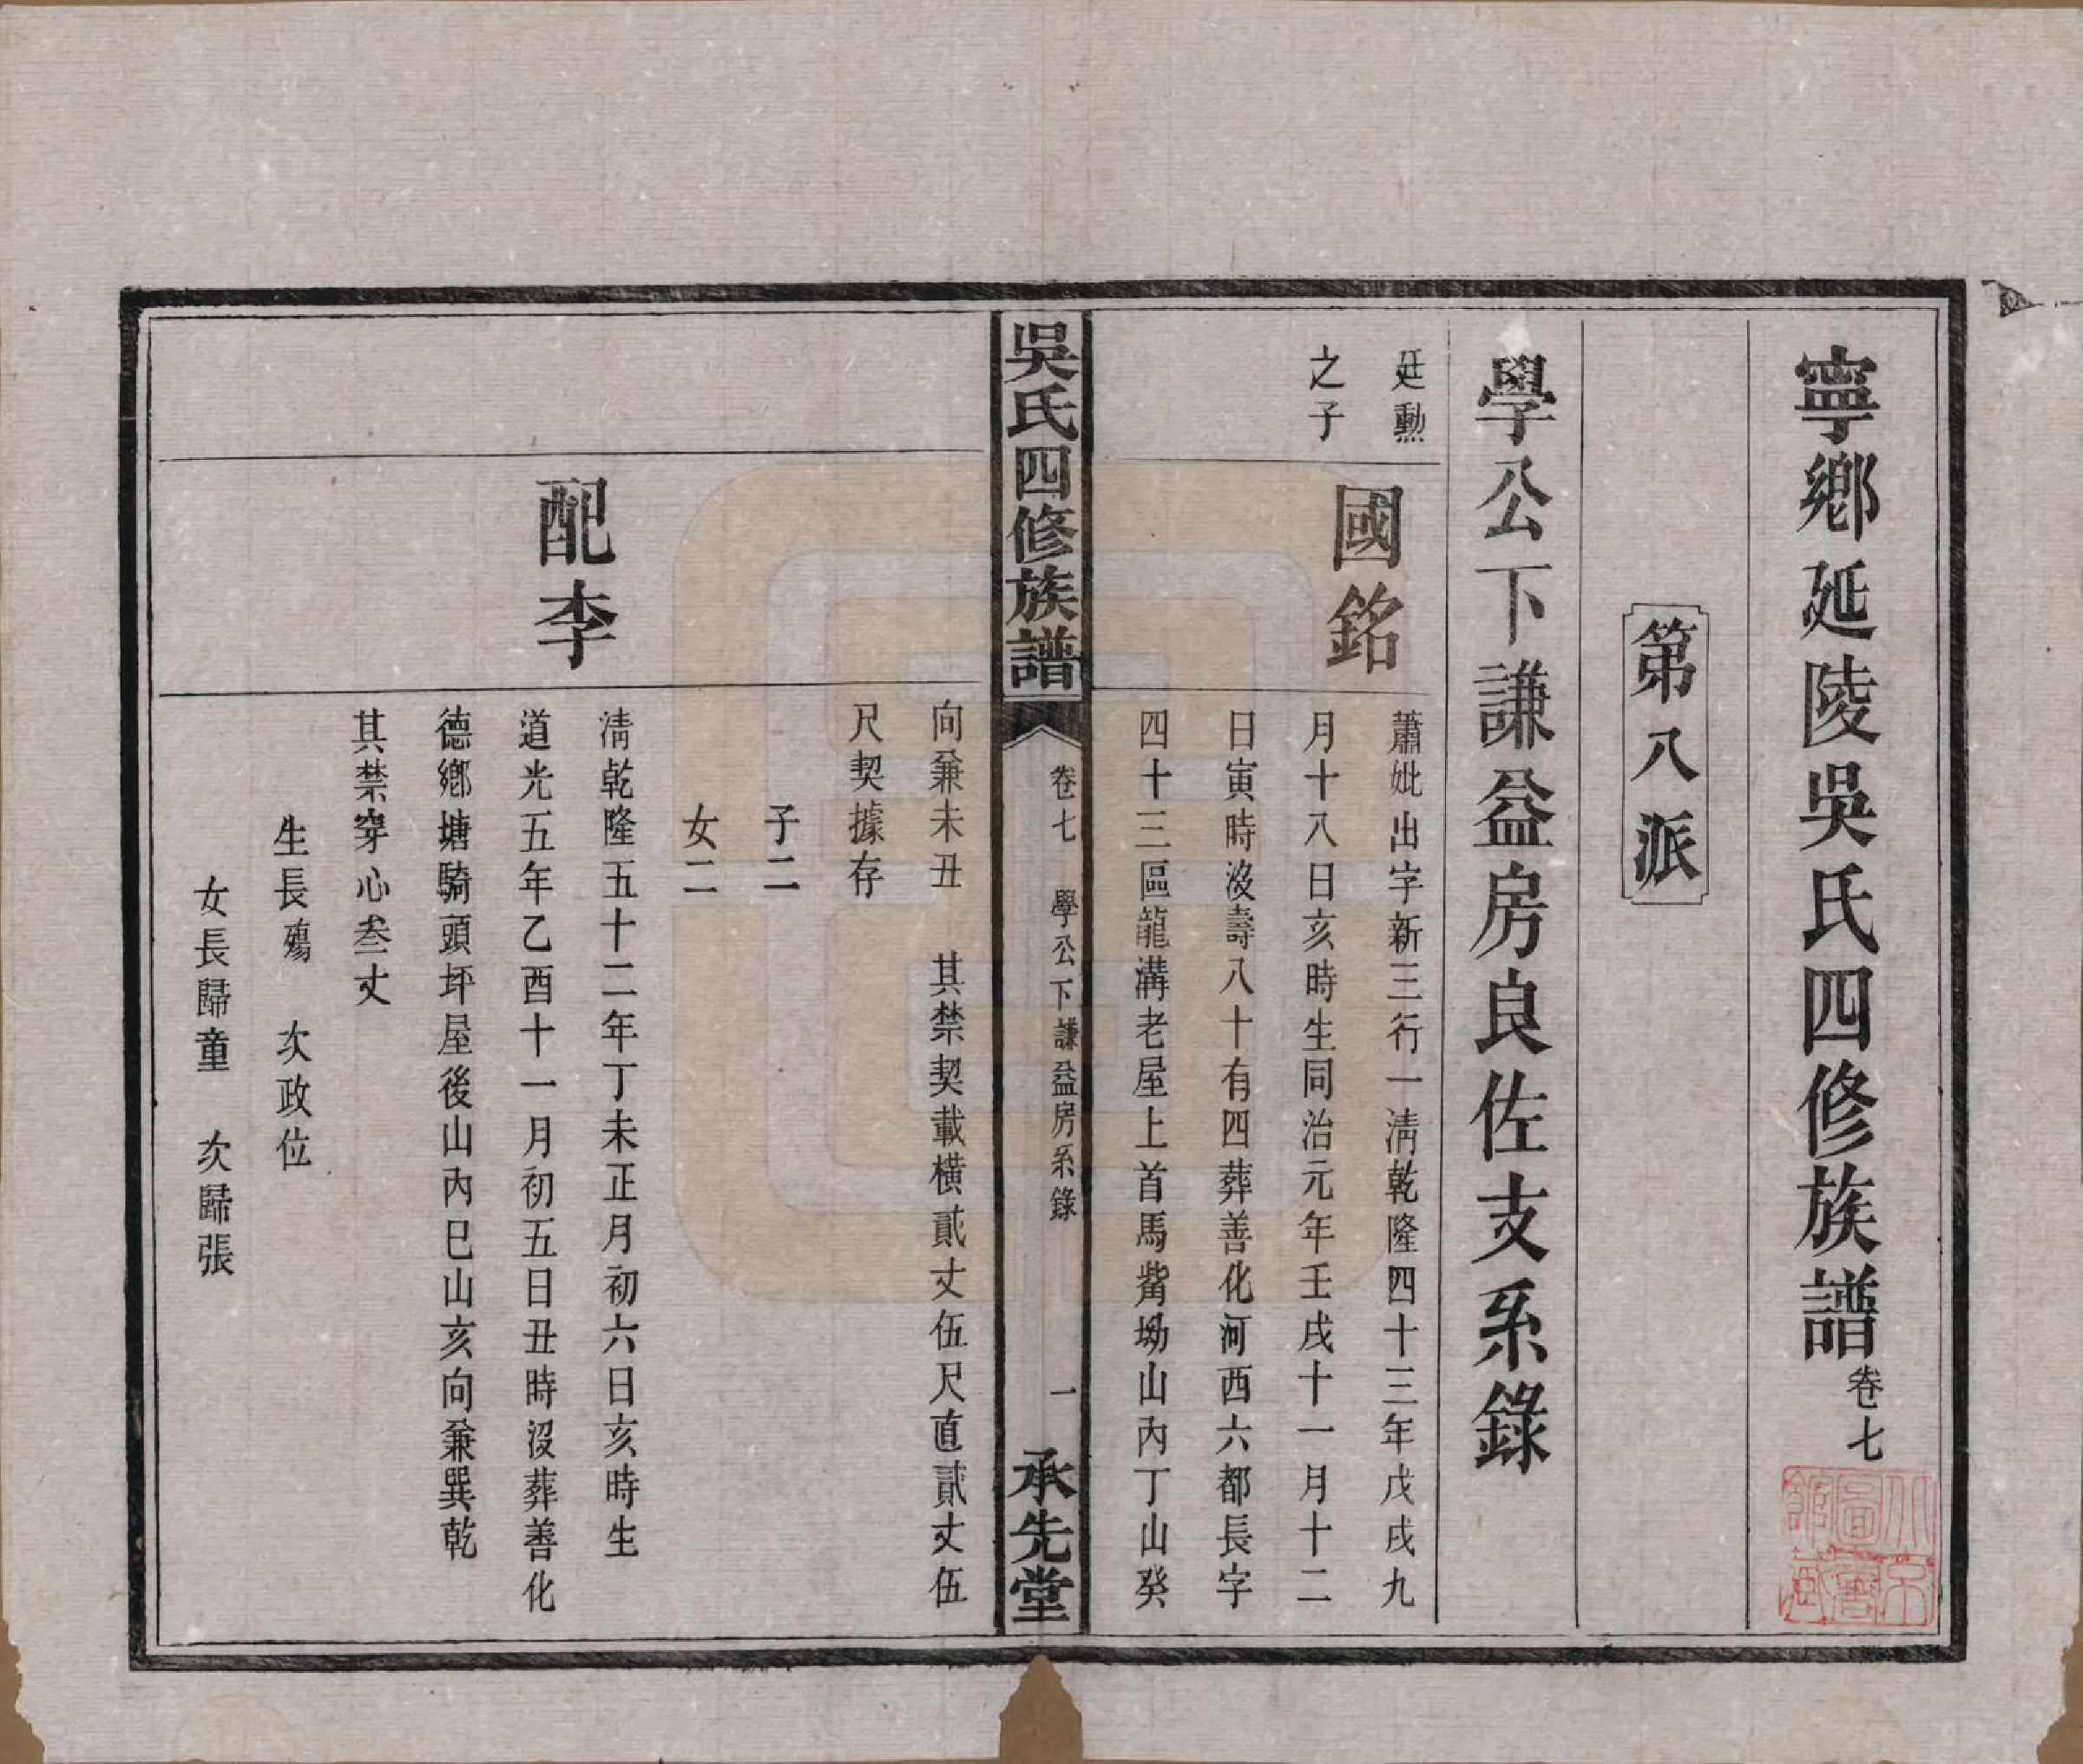 寧鄉延陵吳氏四修族譜卷七
第八派
學公下謙益房良佐支系錄
廷勳
之子
國銘
蕭妣出字新三行一淸乾隆四十三年戊戌九
月十八日亥時生同治元年壬戌十一月十二
日寅時沒壽八十有四葬善化河西六都長字
四十三區龍溝老屋上首馬觜坳山內丁山癸
吳氏四修族譜
卷七
學公下謙益房系錄
一
承先堂
向兼未丑 其禁契載橫貳丈伍尺直貳丈伍
尺契據存
子二
女二
配李
淸乾隆五十二年丁未正月初六日亥時生
道光五年乙酉十一月初五日丑時沒葬善化
德鄉塘騎頭坪屋後山內巳山亥向兼巽乾
其禁穿心叁丈
生長殤 次政位
女長歸童 次歸張
北京圖書館藏